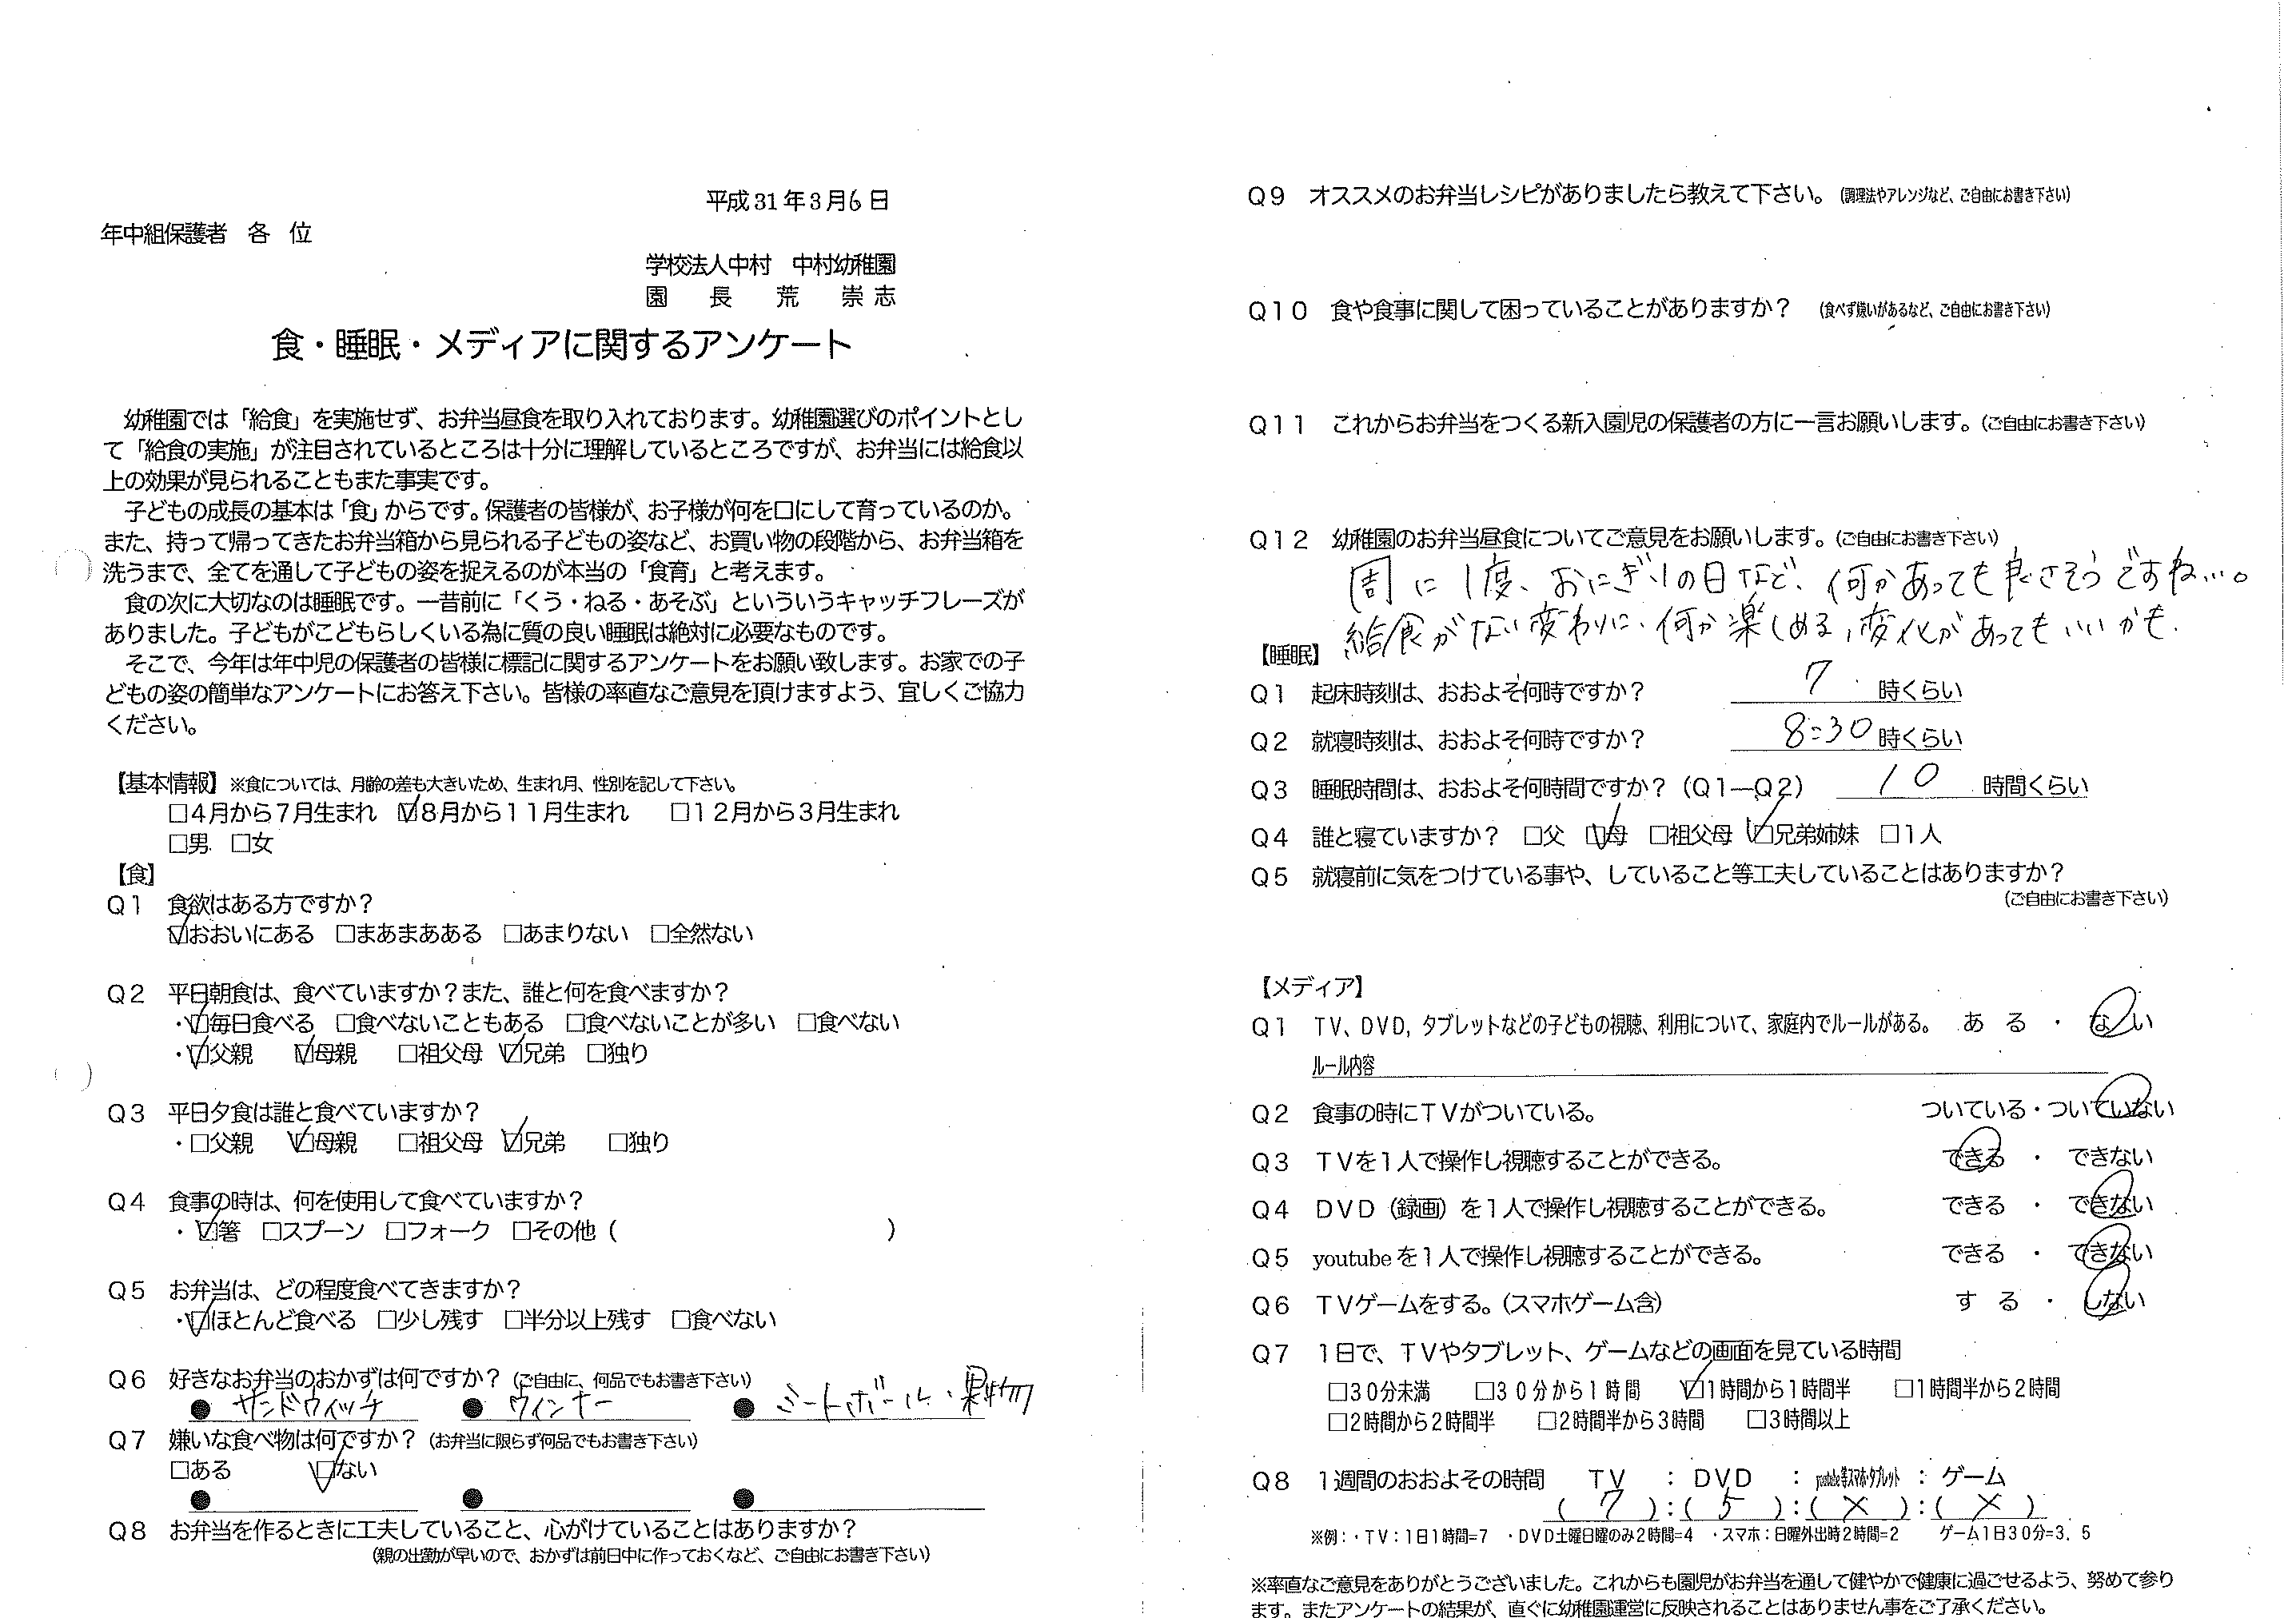 平成31年3月6日
年中組保護者 各 位
学校法人中村 中村幼稚園
園 長 荒 崇志
食・睡眠・メディアに関するアンケート
幼稚園では「給食」を実施せず、お弁当昼食を取り入れております。幼稚園選びのポイントとし
て「給食の実施」が注目されているところは十分に理解しているところですが、お弁当には給食以
上の効果が見られることもまた事実です。
子どもの成長の基本は「食」からです。保護者の皆様が、お子様が何を口にして育っているのか。
また、持って帰ってきたお弁当箱から見られる子どもの姿など、お買い物の段階から、お弁当箱を
洗うまで、全てを通して子どもの姿を捉えるのが本当の「食育」と考えます。
食の次に大切なのは睡眠です。一昔前に「くう・ねる・あそぶ」といういうキャッチフレーズが
ありました。子どもがこどもらしくいる為に質の良い睡眠は絶対に必要なものです。
そこで、今年は年中児の保護者の皆様に標記に関するアンケートをお願い致します。お家での子
どもの姿の簡単なアンケートにお答え下さい。皆様の率直なご意見を頂けますよう、宜しくご協力
ください。
【基本情報】※食については、月齢の差も大きいため、生まれ月、性別を記して下さい。
□4月から7月生まれ ☑8月から11月生まれ □12月から3月生まれ
□男 □女
【食】
Q1 食欲はある方ですか？
☑おおいにある □まあまあある □あまりない □全然ない
Q2 平日朝食は、食べていますか？また、誰と何を食べますか？
・☑毎日食べる □食べないこともある □食べないことが多い □食べない
・☑父親 ☑母親 □祖父母 ☑兄弟 □独り
Q3 平日夕食は誰と食べていますか？
・□父親 ☑母親 □祖父母 ☑兄弟 □独り
Q4 食事の時は、何を使用して食べていますか？
・☑箸 □スプーン □フォーク □その他（ ）
Q5 お弁当は、どの程度食べてきますか？
・☑ほとんど食べる □少し残す □半分以上残す □食べない
Q6 好きなお弁当のおかずは何ですか？（ご自由に、何品でもお書き下さい）
● サンドウィッチ ● ウィンナー ● ミートボール・果物
Q7 嫌いな食べ物は何ですか？（お弁当に限らず何品でもお書き下さい）
□ある ☑ない
● ● ●
Q8 お弁当を作るときに工夫していること、心がけていることはありますか？
（親の出勤が早いので、おかずは前日中に作っておくなど、ご自由にお書き下さい）
Q9 オススメのお弁当レシピがありましたら教えて下さい。（調理法やアレンジなど、ご自由にお書き下さい）
Q10 食や食事に関して困っていることがありますか？ （食べず嫌いがあるなど、ご自由にお書き下さい）
Q11 これからお弁当をつくる新入園児の保護者の方に一言お願いします。（ご自由にお書き下さい）
Q12 幼稚園のお弁当昼食についてご意見をお願いします。（ご自由にお書き下さい）
周に1度、おにぎりの日など、何かあっても良さそうですね…。
給食がない変わりに、何か楽しめる、変化があってもいいかも.
【睡眠】
Q1 起床時刻は、おおよそ何時ですか？ 7 時くらい
Q2 就寝時刻は、おおよそ何時ですか？ 8:30時くらい
Q3 睡眠時間は、おおよそ何時間ですか？（Q1―Q2） 10 時間くらい
Q4 誰と寝ていますか？ □父 ☑母 □祖父母 ☑兄弟姉妹 □1人
Q5 就寝前に気をつけている事や、していること等工夫していることはありますか？
（ご自由にお書き下さい）
【メディア】
Q1 TV、DVD，タブレットなどの子どもの視聴、利用について、家庭内でルールがある。 ある ・ ない
ルール内容
Q2 食事の時にTVがついている。 ついている・ついていない
Q3 TVを1人で操作し視聴することができる。 できる ・ できない
Q4 DVD（録画）を1人で操作し視聴することができる。 できる ・ できない
Q5 youtubeを1人で操作し視聴することができる。 できる ・ できない
Q6 TVゲームをする。（スマホゲーム含） する ・ しない
Q7 1日で、TVやタブレット、ゲームなどの画面を見ている時間
□30分未満 □30分から1時間 ☑1時間から1時間半 □1時間半から2時間
□2時間から2時間半 □2時間半から3時間 □3時間以上
Q8 1週間のおおよその時間 TV ： DVD ： youtube等スマホ・タブレット ： ゲーム
（ 7 ）：（ 5 ）：（ × ）：（ × ）
※例：・TV：1日1時間=7 ・DVD土曜日曜のみ2時間=4 ・スマホ：日曜外出時2時間=2 ゲーム1日30分=3．5
※率直なご意見をありがとうございました。これからも園児がお弁当を通して健やかで健康に過ごせるよう、努めて参り
ます。またアンケートの結果が、直ぐに幼稚園運営に反映されることはありません事をご了承ください。